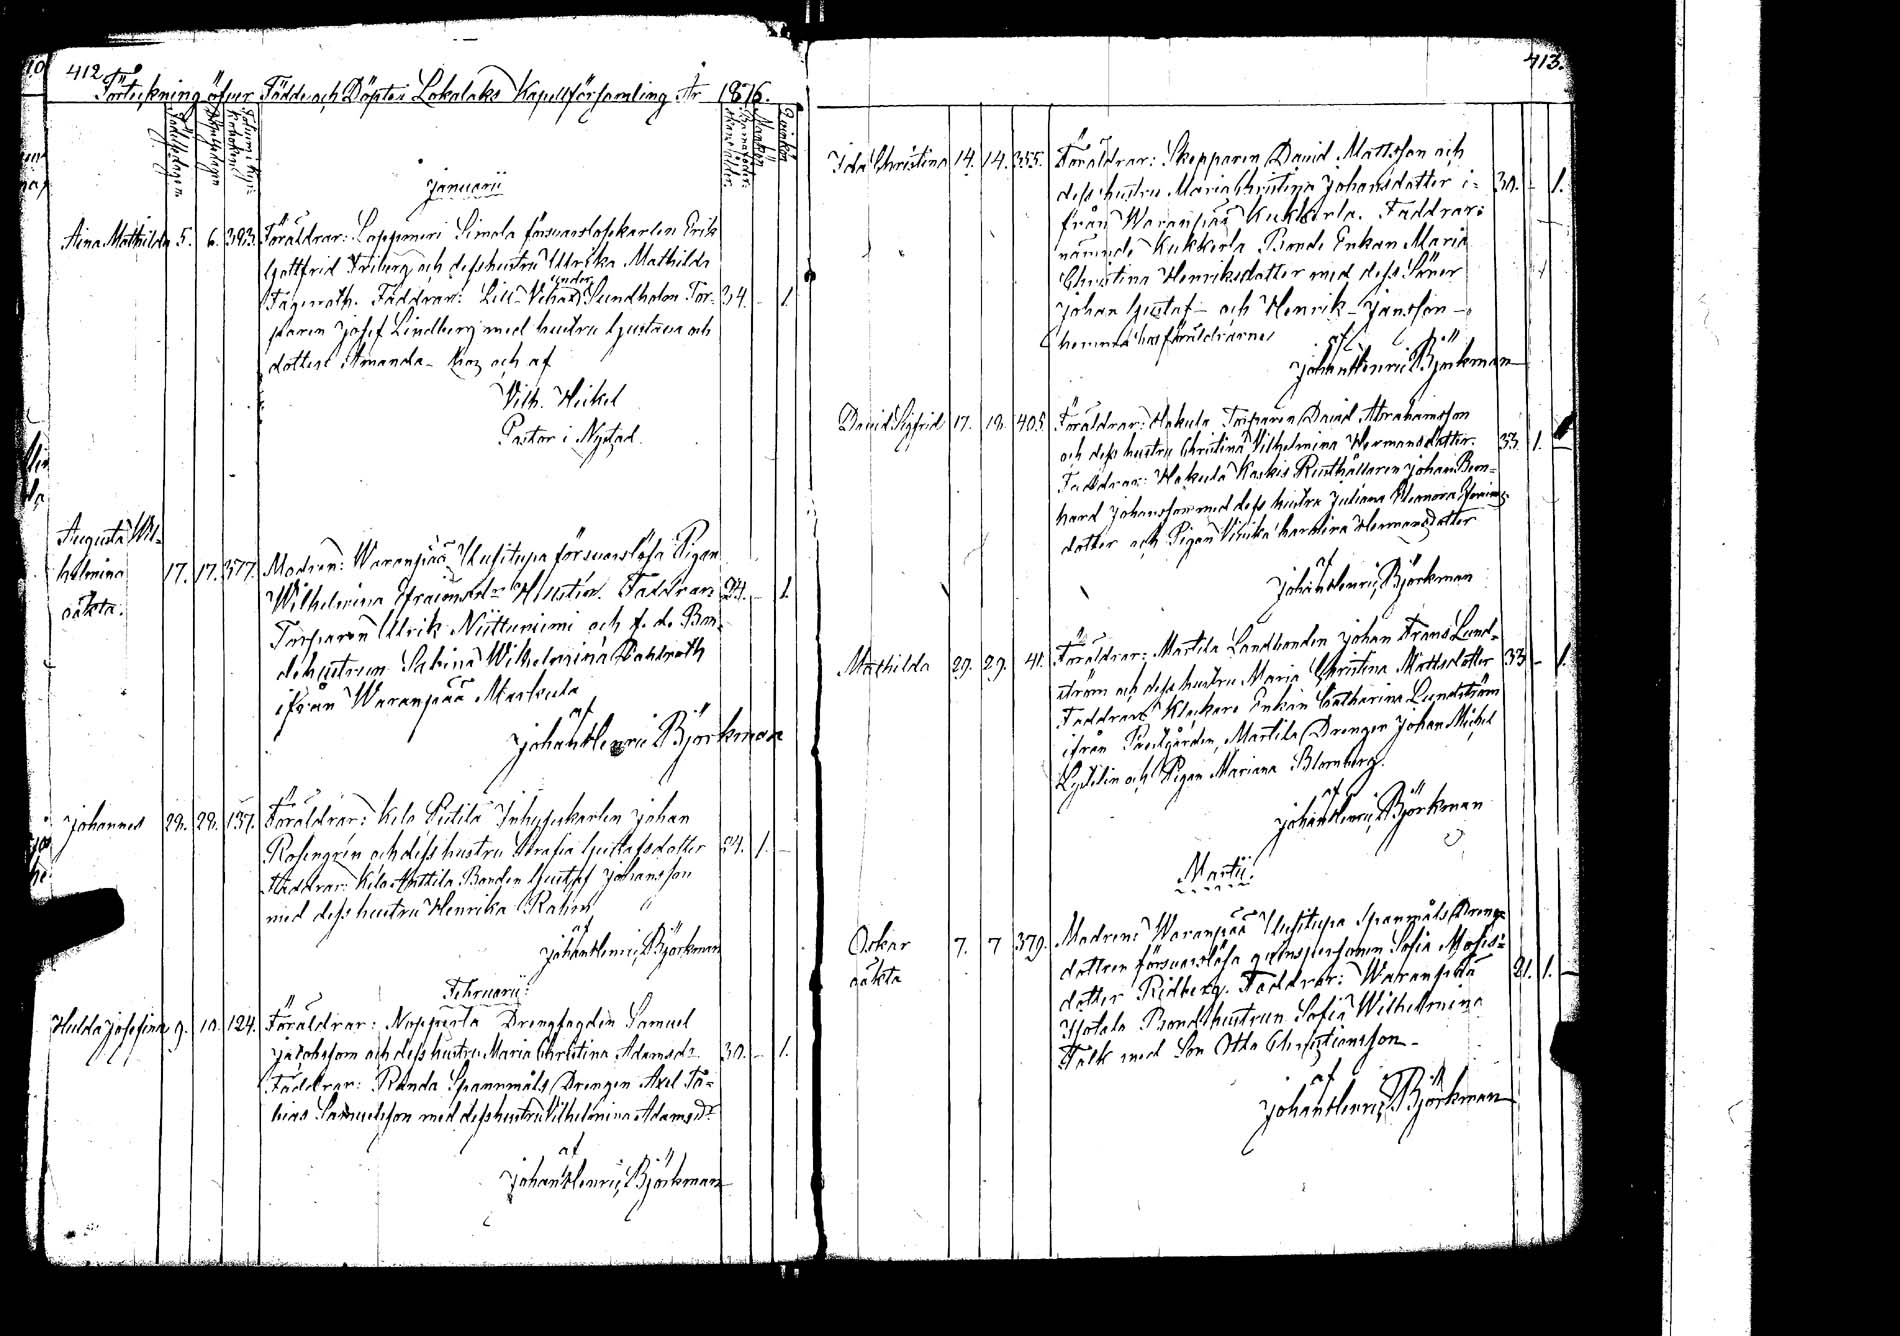 412
Förteckning öfver Födde och Döpte i Lokalaks Kapellförsamling År 1876.
Födelsedagen
Qvinkön
Mankön
Januarii
Aina Mathilda 5. 6. 393. Föräldrar: Lappnneri Simola försvarslösekarlen Erik
Gottfrid Friberg och dess hustru Ulrika Mathilda
Fägerroth. Faddrar: Lill Sundholm Tor- 34. - 1.
paren Josef Lindberg med hustru Gustava och
dotter Amanda - och af
Vilh. Heikel
Pastor i Nystad.
Augusta Wil-
helmina 17. 17. 377. Modren: Waranpää Uusitupa försvarslösa Pigan
oäkta. Wilhelmina Efraimsdr Faddrar: 24. - 1.
Torparen Ulrik Niittuniemi och f. d. Bon-
dehustrun Sabina Wilhelmina Dahlroth
ifrån Waranpää Markula
af
Johan Henric Björkman
Johannes 28. 28. 137. Föräldrar: Kylo Inhysekarlen Johan
Rosengren och dess hustru Serafia Gustafsdotter 34. 1. -
Faddrar: Anttila Bonden Gustaf Johansson
med dess hustru Henrika
af
Johan Henric Björkman
Februarii:
Hulda Josefina 9. 10. 124. Föräldrar: Nopperla Drengfogden Samuel
Jacobsson och dess hustru Maria Christina Adamsdr 30. - 1.
Faddrar: Randa Spannmåls Drengen Axel To-
bias Samuelsson med dess hustru Vilhelmina Adamsdr
af
Johan Henric Björkman
413.
Ida Christina 14. 14. 355. Föräldrar: Skepparen David Mattsson och
dess hustru Maria Christina Johansdotter i- 30. - 1.
från Waranpää Kukkerla. Faddrar:
nämnde Kukkerla Bonde Enkan Maria
Christina Henriksdotter med dess Söner
Johan Gustaf - och Henrik - Jansson -
hemma hos föräldrarne
af
Johan Henric Björkman
David Sigfrid 17. 18. 405. Föräldrar: Hakula Torparen David Abrahamsson
och dess hustru Christina Vilhelmina Hermansdotter. 33. 1. -
Faddrar: Hakula Kaskis Rusthållaren Johan Bern-
hard Johansson med dess hustru Juliana Eleonora Efraims-
dotter och Pigan Ulrika Karolina Hermansdotter
af
Johan Henric Björkman
Mathilda 29. 29. 41. Föräldrar: Martila Landbonden Johan Frans Lund-
ström och dess hustru Maria Christina Mattsdotter 33 - 1.
Faddrar: Klockare Enkan Catharina Lundström
ifrån Prestgården, Martila Drengen Johan Michel
och Pigan Mariana Blomberg.
af
Johan Henric Björkman
Martii.
Oskar 7. 7 379. Modren: Waranpää Uusitupa Spanmåls Dreng-
oäkta dottren försvarslösa qvinspersonen Sofia Moses-
dotter Ridberg. Faddrar: Waranpää 21. 1. -
Bondehustrun Sofia Wilhelmina
Falk med Son Otto Christiansson -
af
Johan Henric Björkman